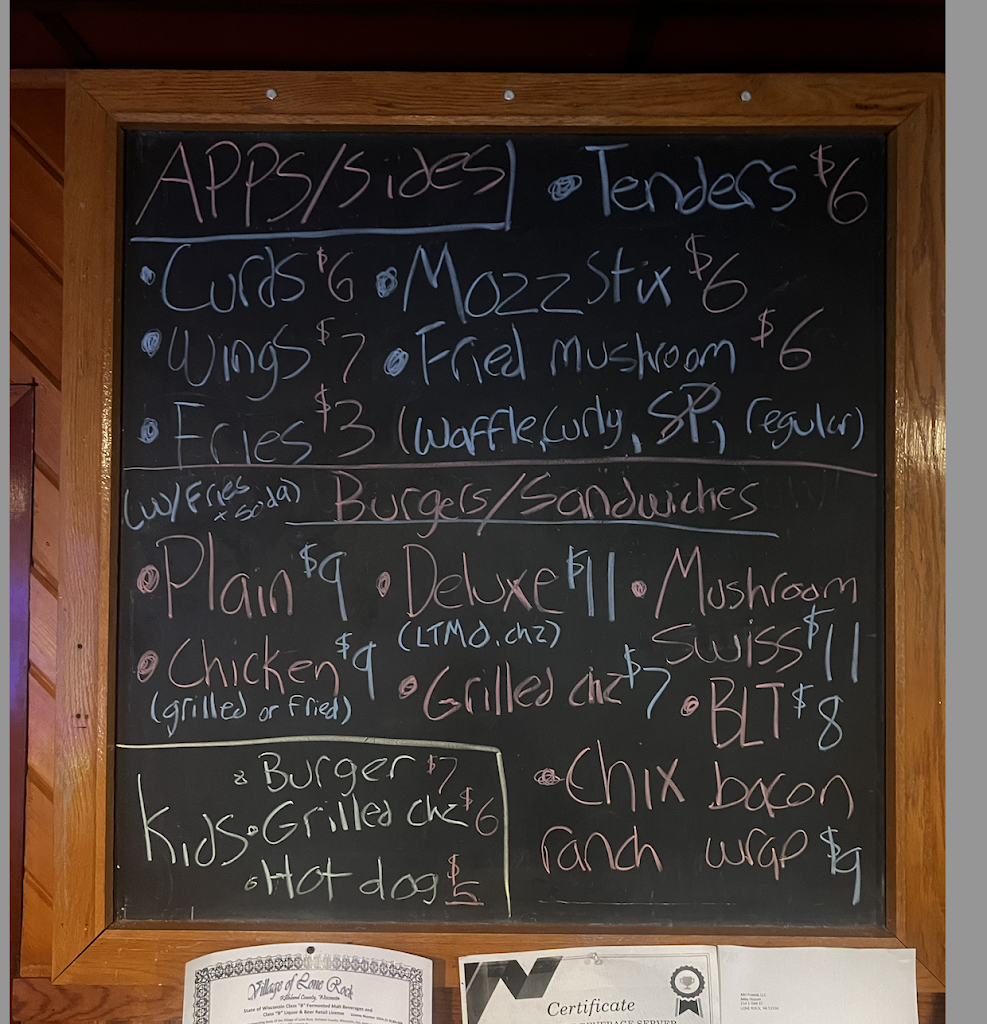 APPS/sides • Tenders $6
• Curds $6 • Mozz Stix $6
• Wings $7 • Fried Mushroom $6
• Fries $3 (waffle, curly, SP, regular)
(w/Fries + soda) Burgers/Sandwiches
• Plain $9 • Deluxe $11 • Mushroom
(LTMO, chz) Swiss $11
• Chicken $9 • Grilled chz $7 • BLT $8
(grilled or fried)
Kids
• Burger $7
• Grilled chz $6
• Hot dog $5
• Chix bacon
ranch wrap $9
Village of Lone Rock
Richland County, Wisconsin
State of Wisconsin Class "B" Fermented Malt Beverages and
Class "B" Liquor & Beer Retail License
Certificate
BEVERAGE SERVER